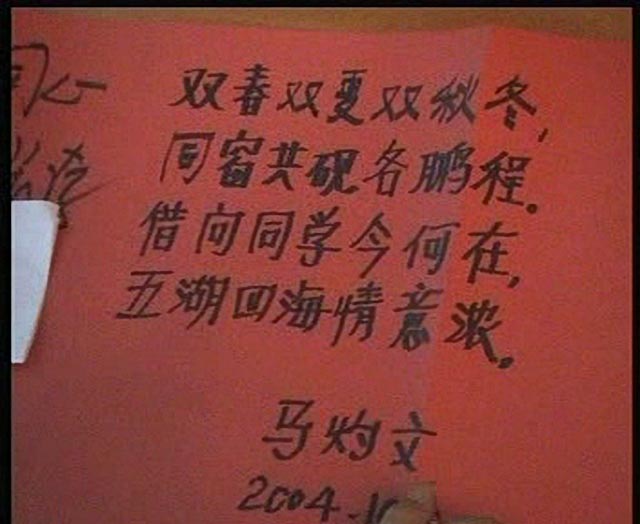 双春双夏双秋冬,
同窗共砚各鹏程。
借问同学今何在,
五湖四海情意浓。
马灼文
2004.10